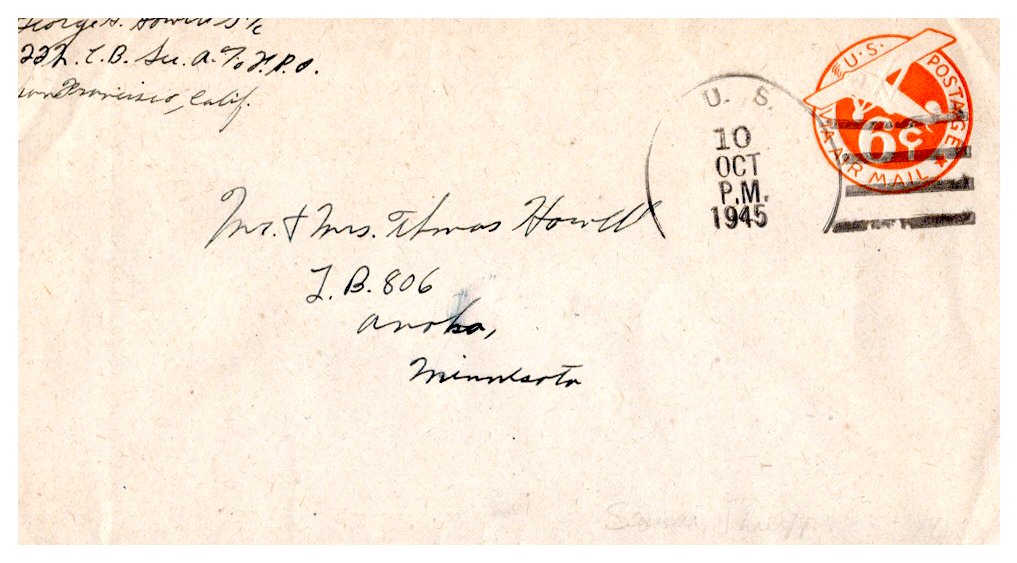 George H. Howell S 1/c
C.B. Sec. A. F.P.O.
San Francisco, Calif.
U.S. POSTAGE
6¢
VIA AIR MAIL
U. S.
10
OCT
P.M.
1945
Mr. & Mrs. Thomas Howell
B. 806
Anoka,
Minnesota
Samar,